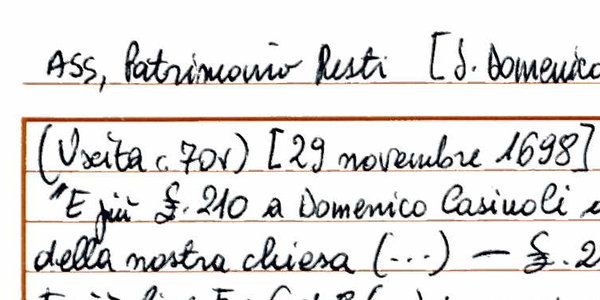 ASS, Patrimonio Resti [S. Domenico
(Uscita c. 70v) [29 novembre 1698]
"E più £. 210 a Domenico Casinoli
della nostra chiesa (...) — £. 2